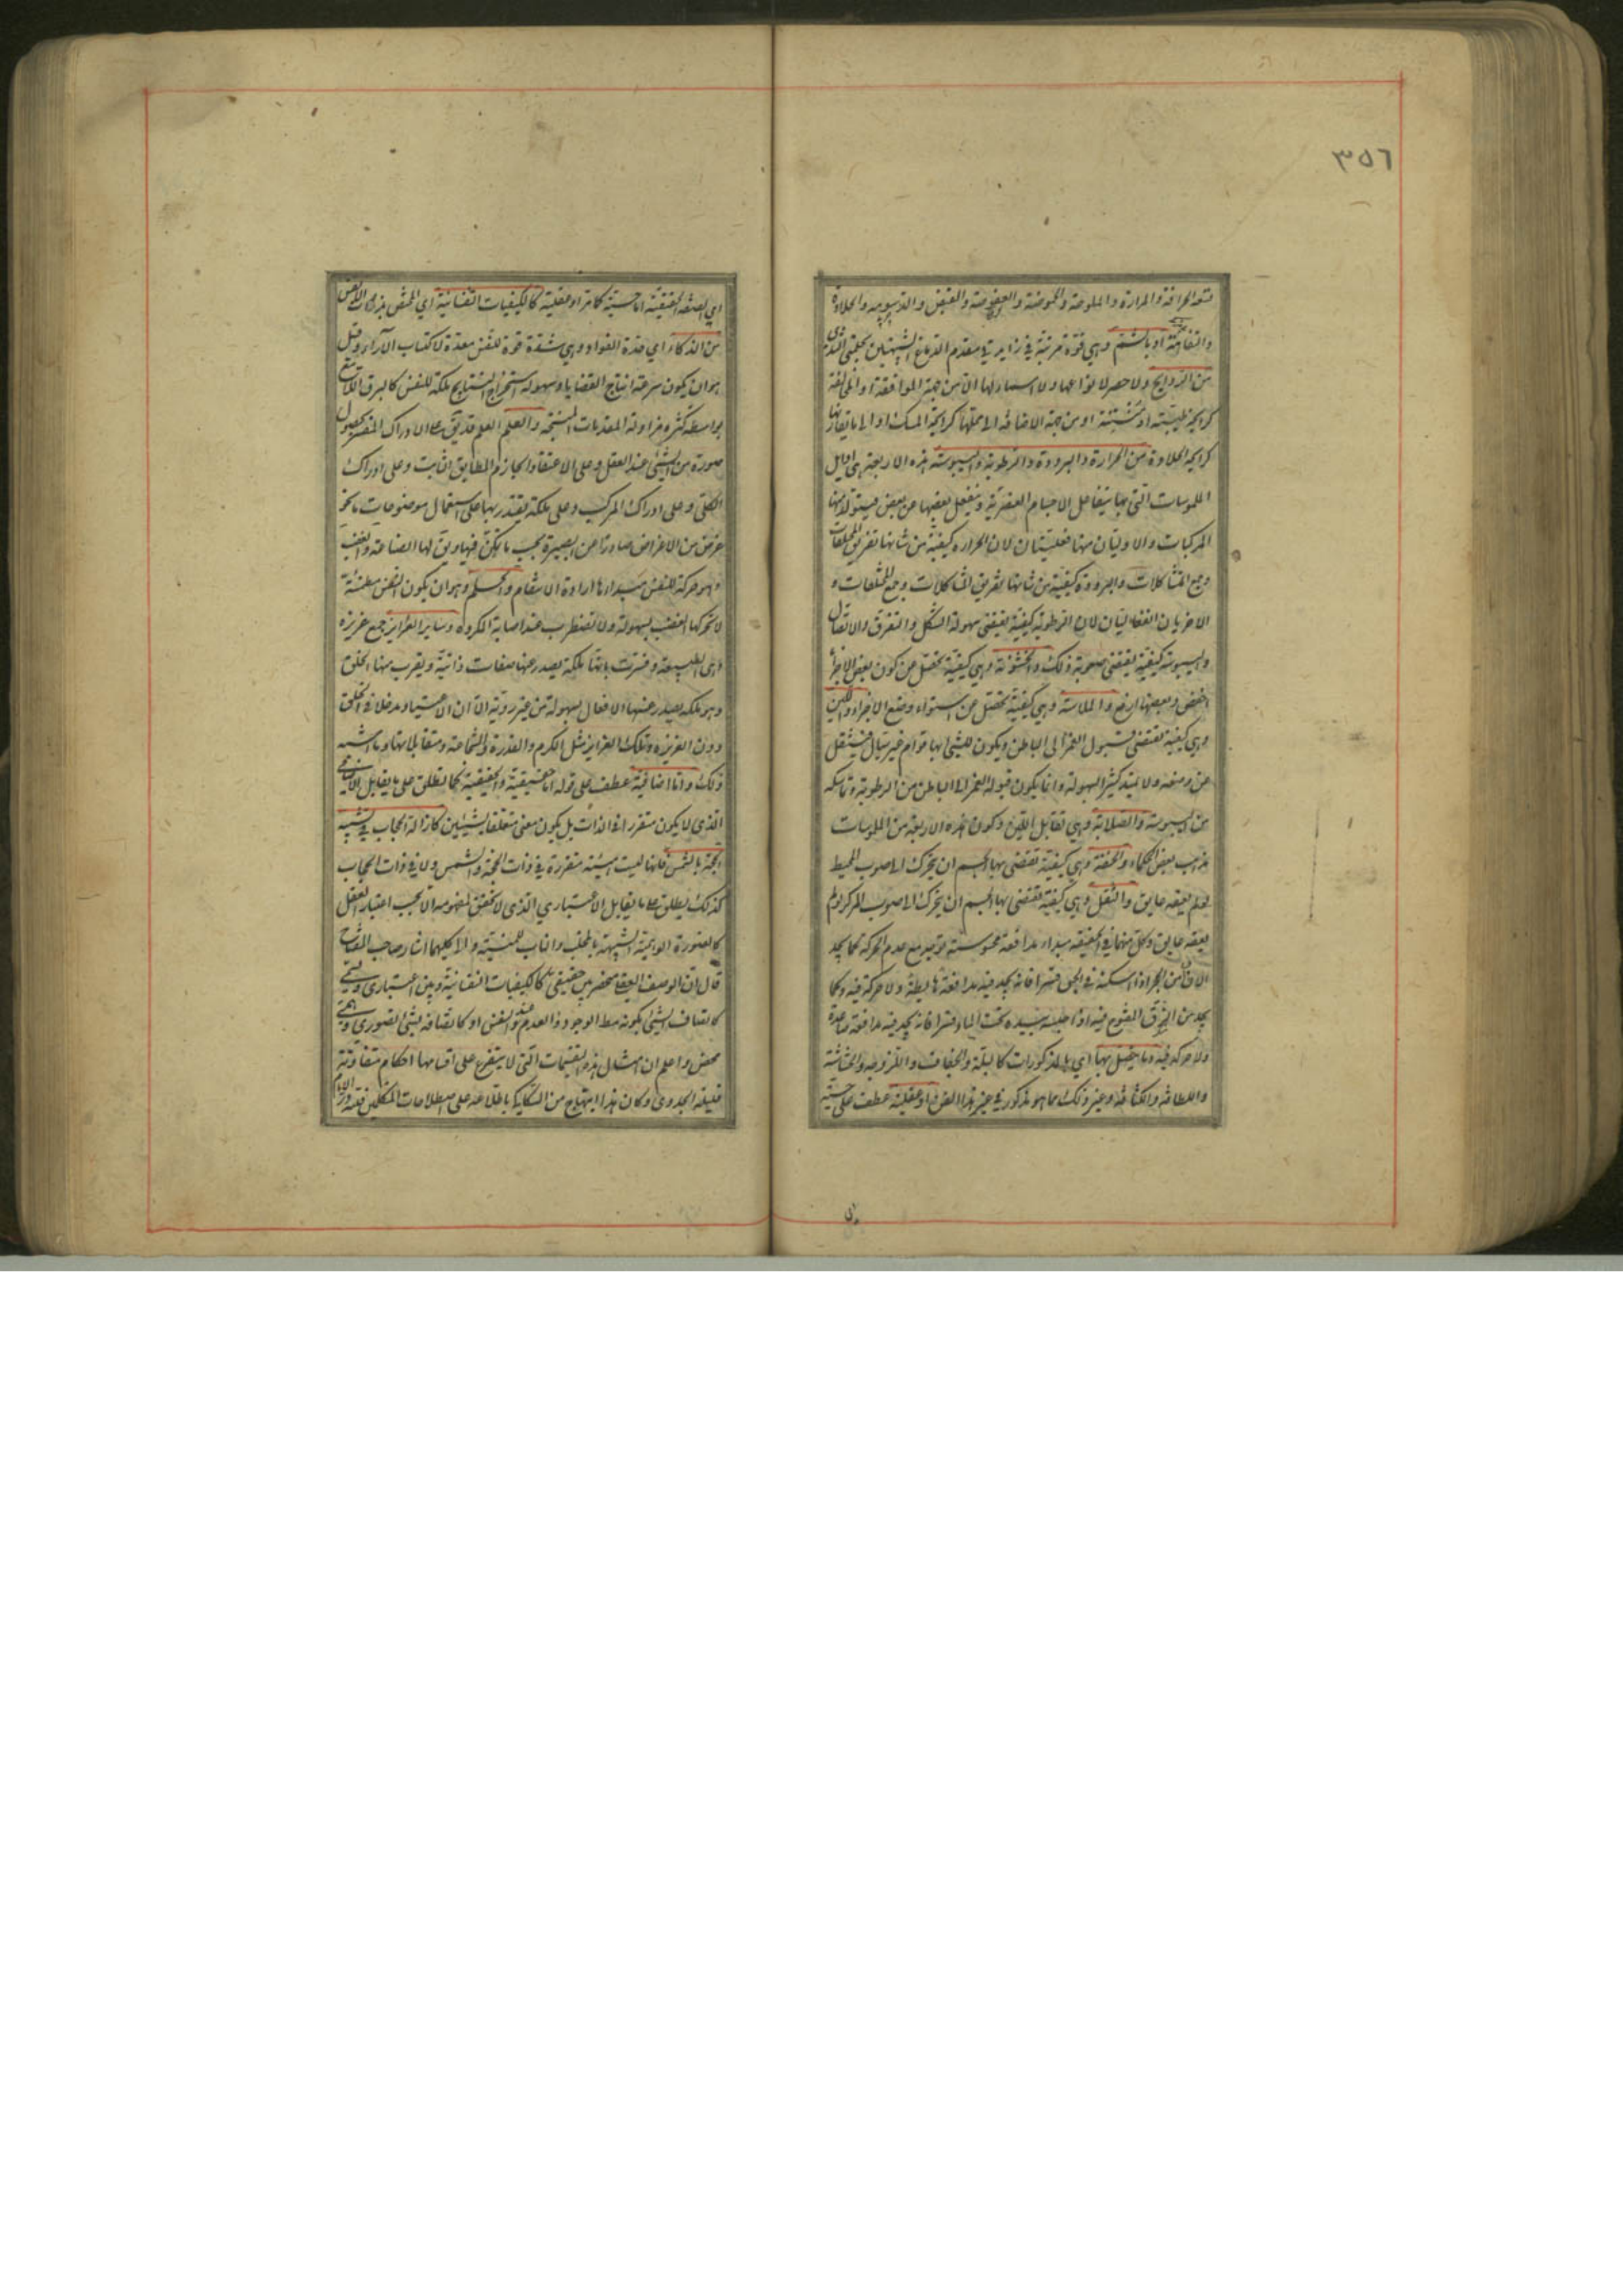 ٣٥٦
تسعة الحرافة والمرارة والملوحة والحموضة والعفوصة والقبض والدسومة والحلاوة
والتفاهة او بالشم وهي قوة مرتبة في زايدتي مقدم الدماغ الشبيهتين بحلمتي الثدي
من الروايح ولا حصر لانواعها ولا اسماء لها الا من جهة الموافقة او المخالفة
كرايحة طيبة او منتنة او من جهة الاضافة الى محلها كرايحة المسك او الى ما يقارنها
كرايحة الحلاوة من الحرارة والبرودة والرطوبة واليبوسة هذه الاربعة هي اوايل
الملموسات التي بها يتفاعل الاجسام العنصرية وينفعل بعضها عن بعض فيتولد منها
المركبات والاوليان منها فعليتان لان الحرارة كيفية من شانها تفريق المختلفات
وجمع المتشاكلات والبرودة كيفية من شانها تفريق المتشاكلات وجمع المختلفات و
الاخريان انفعاليتان لان الرطوبة كيفية تقتضي سهولة التشكل والتفرق والاتصال
واليبوسة كيفية تقتضي صعوبة ذلك والخشونة وهي كيفية تحصل عن كون بعض الاجزاء
اخفض وبعضها ارفع والملاسة وهي كيفية تحصل عن استواء وضع الاجزاء واللين
وهي كيفية تقتضي قبول الغمز الى الباطن ويكون للشئ بها قوام غير سيال فينتقل
عن وضعه ولا يمتد كثيرا بسهولة وانما يكون قبوله الغمز الى الباطن من الرطوبة وتماسكه
من اليبوسة والصلابة وهي تقابل اللين وكون هذه الاربعة من الملموسات
مذهب بعض الحكماء والخفة وهي كيفية تقتضي بها الجسم ان يتحرك الى صوب المحيط
لو لم يعقه عايق والثقل وهي كيفية تقتضي بها الجسم ان يتحرك الى صوب المركز لو لم
يعقه عايق وكل منهما في الحقيقة مبداء مدافعة محسوسة توجد مع عدم الحركة كما يجد
الانسان من الحجر اذا اسكنه في الجو قسرا فانه يجد فيه مدافعة هابطة ولا حركة فيه وكما
يجد من الزق المنفوخ فيه اذا حبسه بيده تحت الماء قسرا فانه يجد فيه مدافعة صاعدة
ولا حركة فيه وما يتصل بها اي بالمذكورات كالبلة والجفاف واللزوجة والهشاشة
واللطافة والكثافة وغير ذلك مما هو مذكور في غير هذا الفن او عقلية عطف على حسية
اي الصفة الحقيقية اما حسية كما مر او عقلية كالكيفيات النفسانية اي المختص بذوات الانفس
من الذكاء اي حدة الفؤاد وهي شدة قوة للنفس معدة لاكتساب الآراء وقيل
هو ان يكون سرعة انتاج القضايا وسهولة استخراج النتايج ملكة للنفس كالبرق اللامع
بواسطة كثرة مزاولة المقدمات المنتجة والعلم العلم قد يق على الادراك المفسر بحصول
صورة من الشئ عند العقل وعلى الاعتقاد الجازم المطابق الثابت وعلى ادراك
الكلي وعلى ادراك المركب وعلى ملكة يقتدر بها على استعمال موضوعات ما نحو
غرض من الاغراض صادرا عن البصيرة بحسب ما يمكن فيها ويق لها الصناعة والغضب
وهو حركة للنفس مبداءها ارادة الانتقام والحلم وهو ان يكون النفس مطمئنة
لا يحركها الغضب بسهولة ولا تضطرب عند اصابة المكروه وساير الغرايز جمع غريزة
وهي الطبيعة وفسرت بانها ملكة يصدر عنها صفات ذاتية ويقرب منها الخلق
وهو ملكة يصدر عنها الافعال بسهولة من غير روية الا ان للاعتياد مدخلا في الخلق
دون الغريزة وتلك الغرايز مثل الكرم والقدرة والشجاعة ومقابلاتها وما اشبه
ذلك واما اضافية عطف على قوله اما حقيقية والحقيقية كما تطلق على ما يقابل الاضافي
الذي لا يكون متقررا في الذات بل يكون معنى متعلقا بشيئين كازالة الحجاب في تشبيه
الحجة بالشمس فانها ليست هيئة متقررة في ذات الحجة والشمس ولا في ذات الحجاب
كذلك يطلق على ما يقابل الاعتباري الذي لا تحقق لمفهومه الا بحسب اعتبار العقل
كالصورة الوهمية الشبيهة بالمخلب والناب للمنية والى كليهما اشار صاحب المفتاح
قال ان الوصف العقلي منحصر بين حقيقي كالكيفيات النفسانية وبين اعتباري ونسبي
كاتصاف الشئ بكونه مط الوجود والعدم عند النفس او كاتصافه بشئ تصوري وهمي
محض واعلم ان امثال هذه التقسيمات التي لا يتفرع على اقسامها احكام متفاوتة
قليلة الجدوى وكان هذا ابتهاج من السكاكي باطلاعه على اصطلاحات المتكلمين فلله در الامام